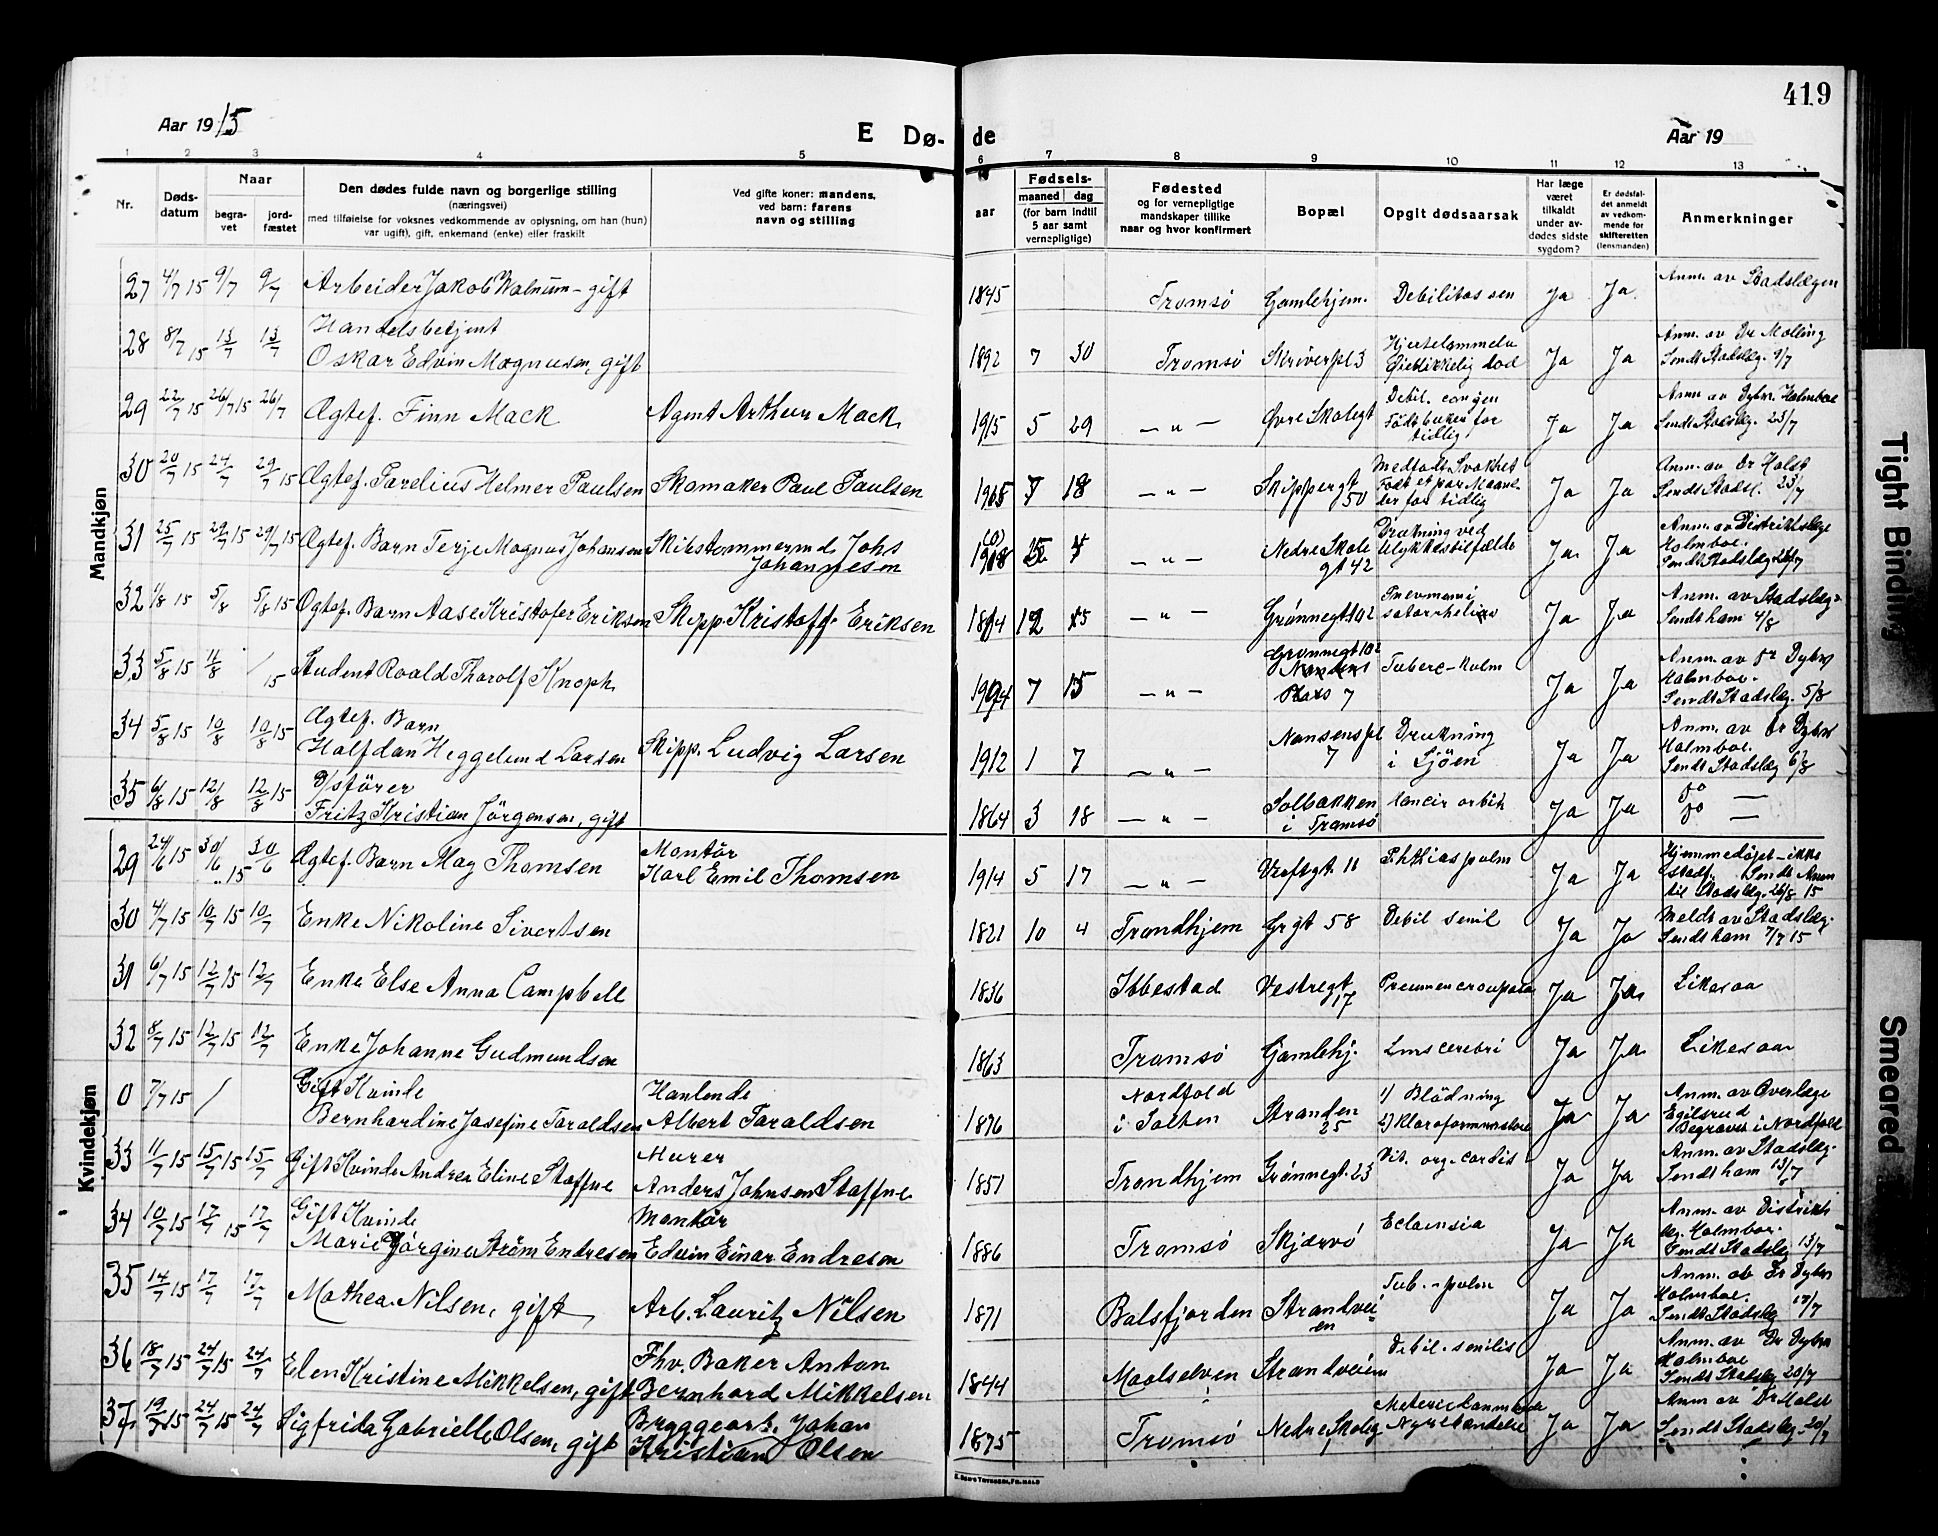 419
Aar 1915
E Dø- de
Aar 19
1 2 3 4 5 6 7 8 9 10 11 12 13
Nr.
Døds-
datum
Naar
begra-
vet
jord-
fæstet
Den dødes fulde navn og borgerlige stilling
(næringsvei)
med tilføielse for voksnes vedkommende av oplysning, om han (hun)
var ugift), gift, enkemand (enke) eller fraskilt
Ved gifte koner: mandens,
ved barn: farens
navn og stilling
Fødsels-
aar
maaned dag
(for barn indtil
5 aar samt
vernepligtige)
Fødested
og for vernepligtige
mandskaper tillike
naar og hvor konfirmert
Bopæl
Opgit dødsaarsak
Har læge
været
tilkaldt
under av-
dødes sidste
sygdom?
Er dødsfal-
det anmeldt
av vedkom-
mende for
skifteretten
(lensmanden)
Anmerkninger
Mandkjøn
27 4/7 15 9/7 9/7 Arbeider Jakob Walnum - gift 1845 Tromsö Gamlehjem. Debilitas sen Ja Ja Anm. av Stadslægen
28 8/7 15 13/7 13/7 Handelsbetjent
Oskar Edvin Magnusen, gift 1892 7 30 Tromsö Skriverpl 3 Hjertelammelse
Øieblikkelig död Ja Ja Anm. av Dr Molling
Sendt Stadslæg. 9/7
29 22/7 15 26/7 15 26/7 Ægtef. Finn Mack Agent Arthur Mack 1915 5 29 — " — Øvre Skolegt Debil. congen
Födt uker for
tidlig Ja Ja Anm av Dybw. Holmboe
Sendt Stadslæg. 23/7
30 20/7 15 24/7 29/7 15 Ægtef. Parelius Helmer Paulsen Skomaker Paul Paulsen 1915 7 18 — " — Skippergt
50 Medfødt Svakhet
Födt et par Maane-
der for tidlig Ja Ja Anm. av Dr Holst
Sendt Stadsl. 23/7
31 25/7 15 29/7 15 29/7 15 Ægtef. Barn Terje Magnus Johansen Skibstømmermd Johs
Johannesen — " — Nedre Skole
gt 42 Drukning ved
Ulykkestilfælde Ja Ja Anm. av Distriktslæge
Holmboe.
Sendt Stadslæg 26/7
32 1/8 15 5/8 5/8 15 Ægtef. Barn Aase Kristofer Eriksen Skipp. Kristoff. Eriksen 12 — " — Grønnegt 102 Ja Ja Anm. av Stadslæg.
Sendt ham 4/8
33 5/8 15 11/8 / 15 Student Roald Thorolf Knoph 7 15 — " — Grønnegt 102
Nansens
Plass 7 Tuberc-Pulm Ja Ja Anm. av Dr Dybw
Holmboe.
Sendt Stadslæg. 5/8
34 5/8 15 10/8 10/8 15 Ægtef. Barn
Halfdan Heggelund Larsen Skipp. Ludvig Larsen 1912 1 7 — " — Nansenspl
7 Drukning
i Sjöen Ja Ja Anm. av Dr Dybw
Holmboe.
Sendt Stadslæg 6/8
35 6/8 15 12/8 12/8 15 D/sförer
Fritz Kristian Jörgensen, gift 1864 3 18 — " — Solbakken
i Tromsö Cancer orbit Ja Ja Do —
Do —
Kvindekjøn
29 24/6 15 30/6 15 30/6 Ægtef. Barn May Thomsen Montör
Karl Emil Thomsen 1914 5 17 — " — Verftsgt. 11 Phthias pulm Ja Ja Hjemmedöpt - ikke
stadf. Sendt Anm
til Stadslæg. 26/8 15
30 4/7 15 10/7 15 10/7 Enke Nikoline Sivertsen 1821 10 4 Trondhjem Grgt 58 Debil senil Ja Ja Meldt av Stadslæg.
Sendt ham 7/7 15
31 6/7 15 12/7 15 12/7 Enke Else Anna Campbell 1836 Ibbestad Vestregt
17 Pneumen crouposa Ja Ja Likesaa
32 8/7 15 12/7 15 12/7 Enke Johanne Gudmundsen 1863 Tromsö Gamlehj. Lues cerebri Ja Ja Likesaa
0 7/7 15 / Gift Kvinde
Bernhardine Josefine Taraldsen Hanlende
Albert Taraldsen 1876 Nordfold
i Salten Stranden
25 1) Blödning
2) Ja Ja Anm. av Overlæge
Egilsrud
Begravet i Nordfold
33 11/7 15 15/7 15 15/7 Gift Kvinde Andrea Eline Staffne Murer
Anders Johnsen Staffne 1851 Trondhjem Grønnegt. 23 Vit. org. cordis Ja Ja Anm. av Stadslæg.
Sendt ham 13/7
34 10/7 15 17/7 15 17/7 Gift Kvinde
Marie Jörgine Ström Endresen Montör
Edvin Einar Endresen 1886 Tromsö Skjærvö Eclamsia Ja Ja Anm. av Distrikts
læg. Holmboe.
Sendt Stadslæg 13/7
35 14/7 15 17/7 17/7 Mathea Nilsen, gift Arb. Lauritz Nilsen 1871 Balsfjorden Strandvei-
en Tub. - pulm Ja Ja Anm. av Dr Dybw
Holmboe.
Sendt Stadslæg 17/7
36 18/7 15 24/7 15 24/7 Elen Kristine Mikkelsen, gift Fhv. Baker Anton
Bernhard Mikkelsen 1844 Maalselven Strandveien Debil. senilis Ja Ja Anm. av Dr Dybw
Holmboe
Sendt Stadslæg 20/7
37 19/7 15 24/7 15 24/7 Sigfrida Gabrielle Olsen, gift Bryggearb. Johan
Kristian Olsen 1875 Tromsö Nedre Skoleg
Nyrebetændelse Ja Ja Anm av Dr Holst
Sendt Stadslæg. 20/7
Tight Binding
Smeared